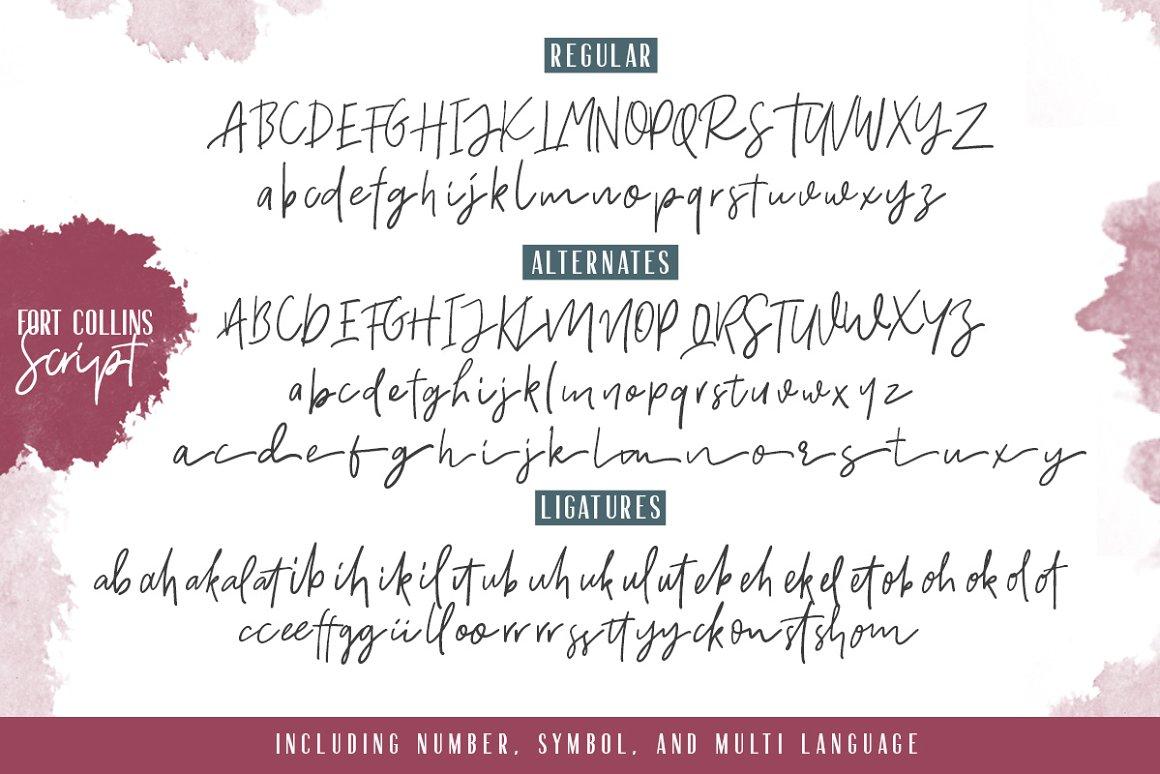 REGULAR
ABCDEFGHIJKLMNOPQRSTUVWXYZ
abcdefghijklmnopqrstuvwxyz
ALTERNATES
ABCDEFGHIJKLMNOPQRSTUVWXYZ
abcdefghijklmnopqrstuvwxyz
acdefghijklmnorstuxy
FORT COLLINS
Script
LIGATURES
ab ah ak al at ib ih ik il it ub uh uk ul ut eb eh ek el et ob oh ok ol ot
cc ee ff gg ii ll oo rr rr ss tt yy ck on st sh om
INCLUDING NUMBER, SYMBOL, AND MULTI LANGUAGE